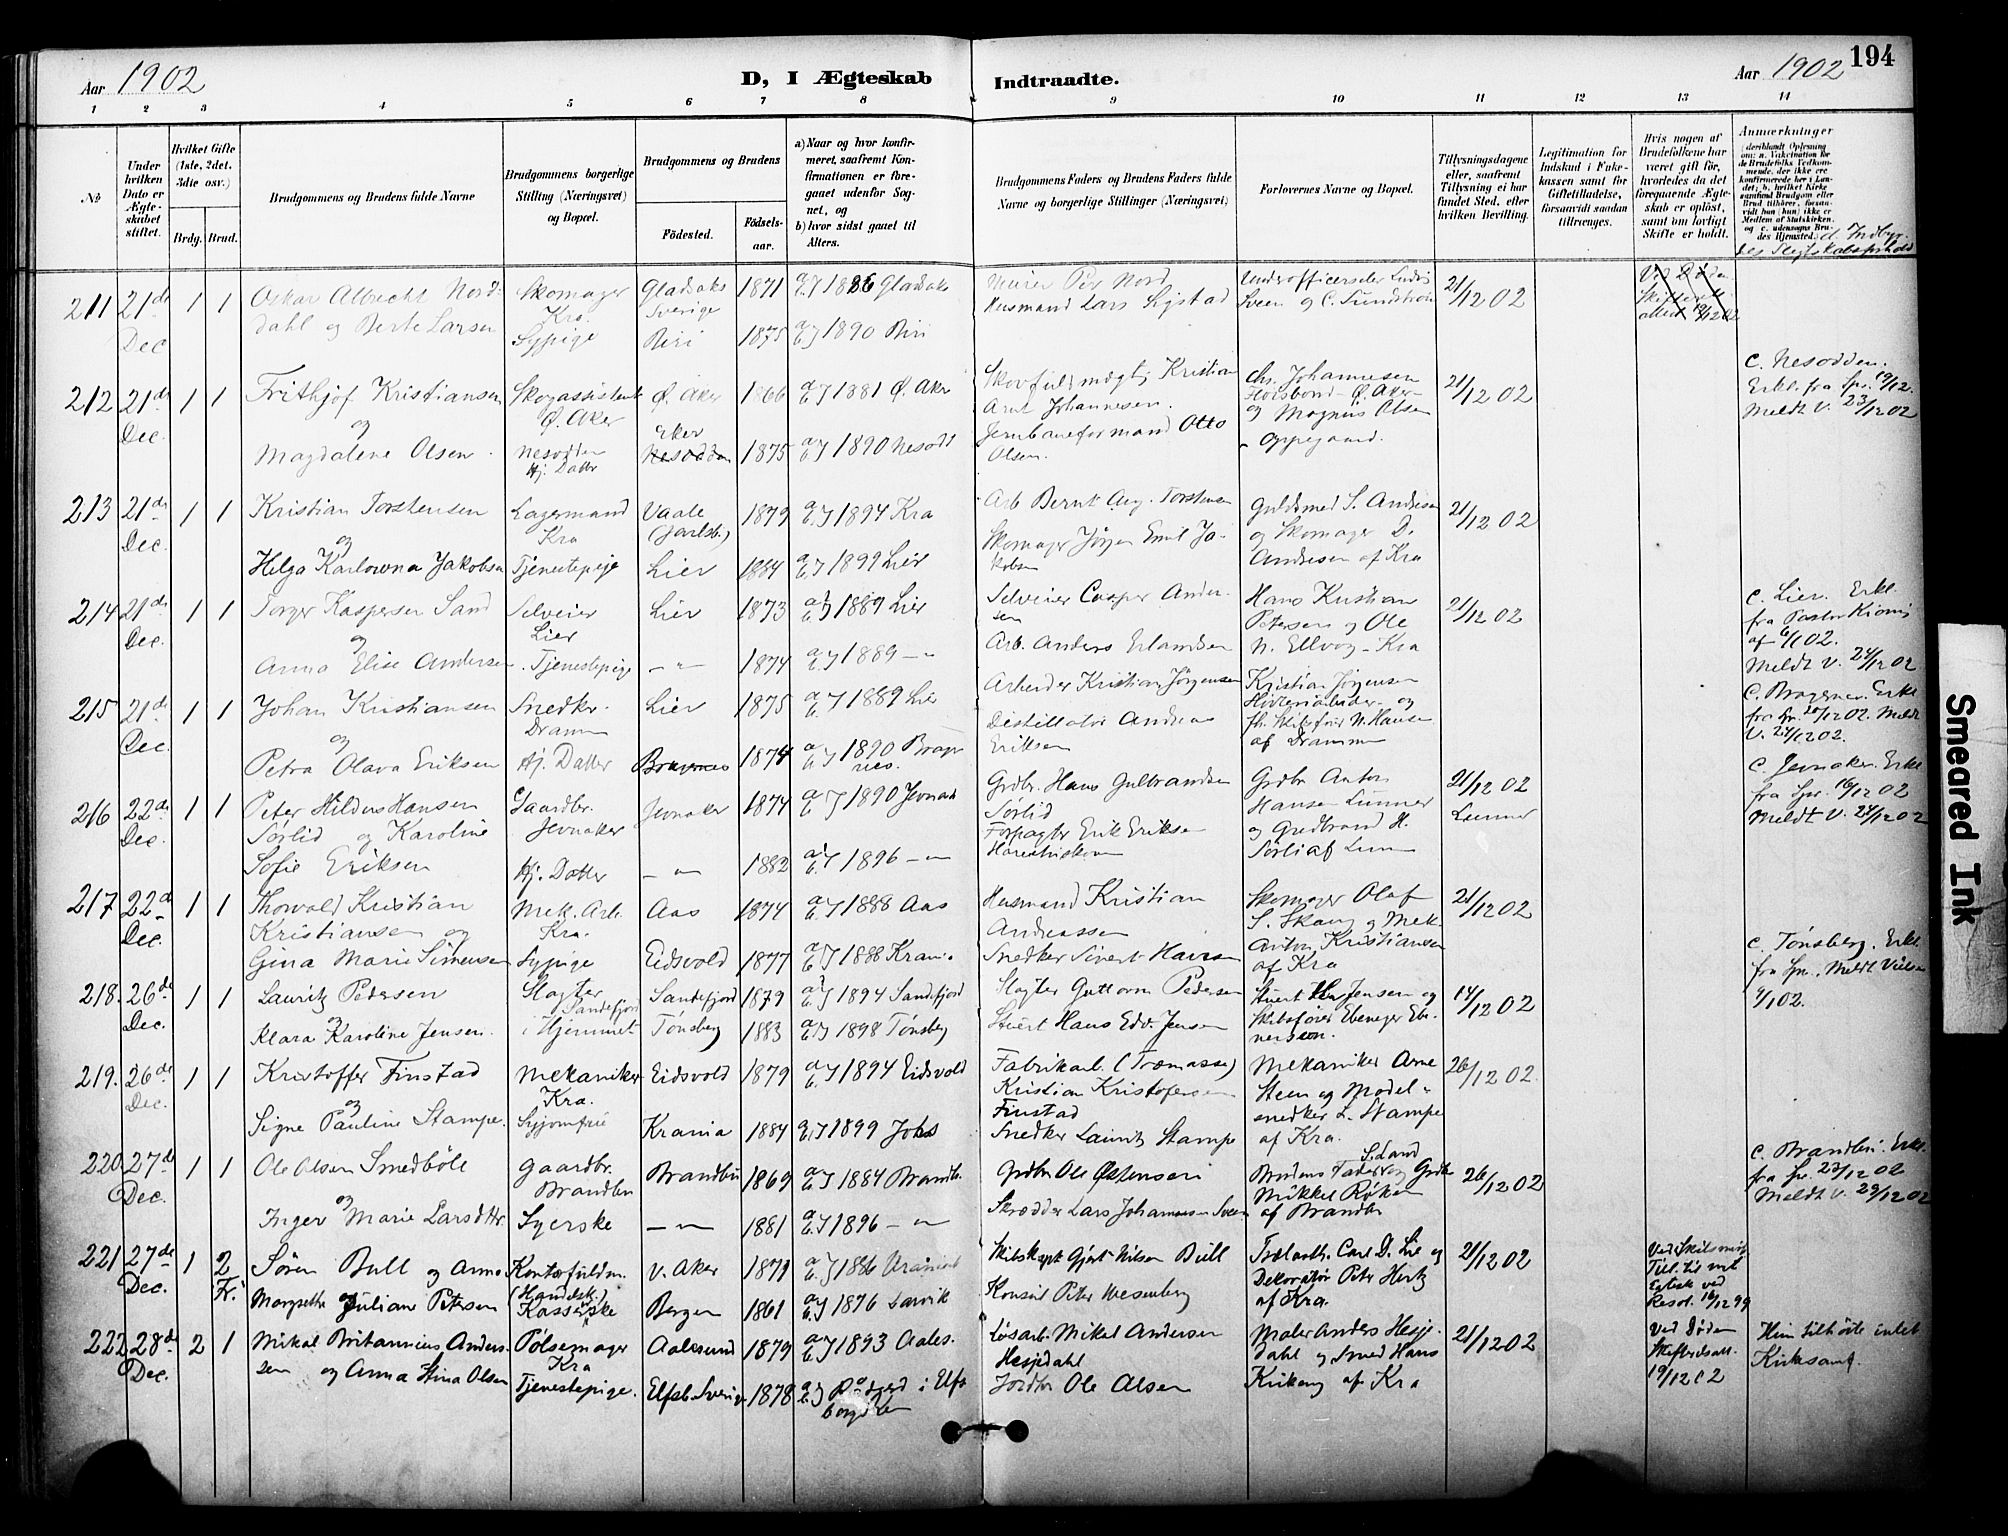 Aar 1902
D, I Ægteskab Indtraadte.
Aar 1902
194
1 2 3 4 5 6 7 8 9 10 11 12 13 14
№
Under hvilken Dato er Ægteskabet stiftet.
Hvilket Gifte (1ste, 2det, 3die osv.)
Brdg. Brud.
Brudgommens og Brudens fulde Navne
Brudgommens borgerlige Stilling (Næringsvei) og Bopæl.
Brudgommens og Brudens
Födested.
Födselsaar.
a) Naar og hvor konfirmeret, saafremt Konfirmationen er foregaaet udenfor Sognet, og
b) hvor sidst gaaet til Alters.
Brudgommens Faders og Brudens Faders fulde Navne og borgerlige Stillinger (Næringsvei)
Forlovernes Navne og Bopæl.
Tillysningsdagene eller, saafremt Tillysning ei har fundet Sted, efter hvilken Bevilling.
Legitimation for Indskud i Enkekassen samt for Giftetilladelse, forsaavidt saadan tiltrænges.
Hvis nogen af Brudefolkene har været gift för, hvorledes da det foregaaende Ægteskab er oplöst, samt om lovligt Skifte er holdt.
Anmærkninger
(deriblandt Oplysning om: a. Vakcination for de Brudefolks Vedkommende, der ikke ere konfirmerede her i Landet; b. hvilket Kirkesamfund Brudgom eller Brud tilhører, forsaavidt han (hun) ikke er Medlem af Statskirken, og c. udensogns Brudes Hjemsted. d. Indbyrdes Slegtskabsforhold
211 21de Dec 1 1
Oskar Albrecht Norddahl og Berte Larsen
Skomager Kra.
Sypige
Gladsaks Sverige
Biri
1871
1875
1886 Gladsaks
1890 Biri
Murer Per Nord
Husmand Lars Sigstad
Underofficerselev Ludvig Sveen og C. Sundström
21/12 02
Ved Døden
212 21de Dec. 1 1
Frithjof Kristiansen
og
Magdalene Olsen
Skogassistent Ø. Aker
Nesodden Hj. Datter
Ø. Aker
Aker Nesodden
1866
1875
1881 Ø. Aker
1890 Nesodd
Skovfuldmægtig Kristian Arnt Johannesen.
Jernbaneformand Otto Olsen.
Chr. Johannesen Ø. Aker og Magnus Olsen Oppegaard.
21/12 02
C. Nesodden. Erkl. fra Spr. 19/12. Meldt V. 23/12 02
213 21de Dec. 1 1
Kristian Torstensen
og
Helga Karlowna Jakobsen
Lagermand Kra
Tjenestepige
Vaale (Jarlsb.)
Lier
1879
1884
1894 Kra
1899 Lier
Arb Bernt Aug. Torstensen
Skomager Jörgen Emil Jakobsen
Guldsmed S. Andersen og Skomager D. Andersen af Kra
21/12 02
214 21de Dec. 1 1
Torger Kaspersen Sand
og
Anna Elise Andersen
Selveier Lier
Tjenestepige
Lier
- " -
1873
1874
1889 Lier
1889 - "
Selveier Casper Andersen
Arb. Anders Erlandsen
Hans Kristian Petersen og Ole N. Ellvog - Kra
21/12 02
C. Lier. Erkl. fra Pastor Kiønig af 6/1 02. Meldt V. 24/12 02
215 21de Dec. 1 1
Johan Kristiansen
og
Petra Olava Eriksen
Snedker. Dramm
Hj. Datter
Lier
Bragernes
1875
1874
1889 Lier
1890 Bragernes.
Arbeider Kristian Jörgensen
Distillatör Andreas Eriksen
Kristian Jörgensen og fh. Skibsförer N. Hansen af Drammen
C. Bragernes. Erkl. fra Spr. 20/12 02. Meldt V. 24/12 02.
216 22de Dec. 1 1
Peter Hildus Hansen Sörlid og Karoline Sofie Eriksen
Gaardbr. Jevnaker
Hj. Datter
Jevnaker
- " -
1874
1882
1890 Jevnak
1896 - "
Grdbr. Hans Gulbrandsen Sörlid
Forpagter Erik Eriksen
Grdbr. Anton Hansen Lunner og Gudbrand H. Sörli af Lunn
21/12 02 Lunner
C. Jevnaker. Erkl. fra Spr. 16/12 02 Meldt V. 24/12 02
217 22de Dec. 1 1
Thorvald Kristian Kristiansen og
Gina Marie Simensen
Mek. Arb. Kra.
Sypige
Aas
Eidsvold
1874
1877
1888 Aas
1888 Krania
Husmand Kristian Andreassen
Snedker Sivert Hansen
Skomager Olaf S. Skaug og Mek. Anton Kristiansen af Kra
21/12 02
218. 26de Dec. 1 1
Lauritz Pedersen
og
Klara Karoline Jensen.
Slagter Sandefjord
i Hjemmet
Sandefjord
Tönsberg
1879
1883
1894 Sandefjord
1898 Tönsberg
Slagter Guttorm Pedersen
Stuert Hans Edv. Jensen
Stuert H. Jensen og Skibsförer Ebeneser Ebenersson.
14/12 02
C. Tönsberg. Erkl. fra Spr. Meldt Vielsen 9/1 02.
219. 26de Dec. 1 1
Kristoffer Finstad
og
Signe Pauline Stampe.
Mekaniker Kra.
Syjomfru
Eidsvold
Krania
1879
1884
1894 Eidsvold
1899 Johs
Fabrikarb. (Træmasse) Kristian Kristofersen Finstad
Snedker Lauritz Stampe
Mekaniker Arne Steen og Modelsnedker L. Stampe af Kra.
26/12 02.
220 27de Dec. 1 1
Ole Olsen Smedböle
og
Inger Marie Larsdttr.
Gaardbr. Brandbu
Syerske
Brandbu
- " -
1869
1881
1884 Brandb.
1896 - "
Grdbr Ole Østensen
Skrædder Lars Johannesen Sveen
Brudens Fader S. Land og Grdbr Mikkel Röken af Brandbu
26/12 02
C. Brandbu. Erkl. fra Spr. 23/12 02 Meldt V. 29/12 02
221 27de Dec. 1 2 Fr.
Sören Bull og Anna Margrethe Juliane Petersen
Kontorfuldm. (Handelsk.)
Kassererske
V. Aker
Bergen
1871
1861
1886 Uranienb
1876 Larvik
Skibskapt Gjert Nilsen Bull
Konsul Peter Wesenberg
Trælasth. Carl D. Lie og Dekoratör Peter Hertz af Kra.
21/12 02
Ved Skilsmisse Till. til nyt Egtesk. ved Resol. 16/12 99
222 28de Dec. 2 1
Mikal Britannius Anderssen og Anna Stina Olsen
Pölsemager Kra
Tjenestepige.
Aalesund
Elfsb. Sverige
1879
1878
1893 Aales.
Röred i Elfsborgs
Lösarb. Mikal Andersen Hesjedahl
Jordbr Ole Olsen
Maler Anders Hesjedahl og Smed Hans Krikeng af Kra
21/12 02
Ved Döden Skifteretsatt. 19/12 02
Hun tilhörte intet Kirkesamf.
Smeared Ink